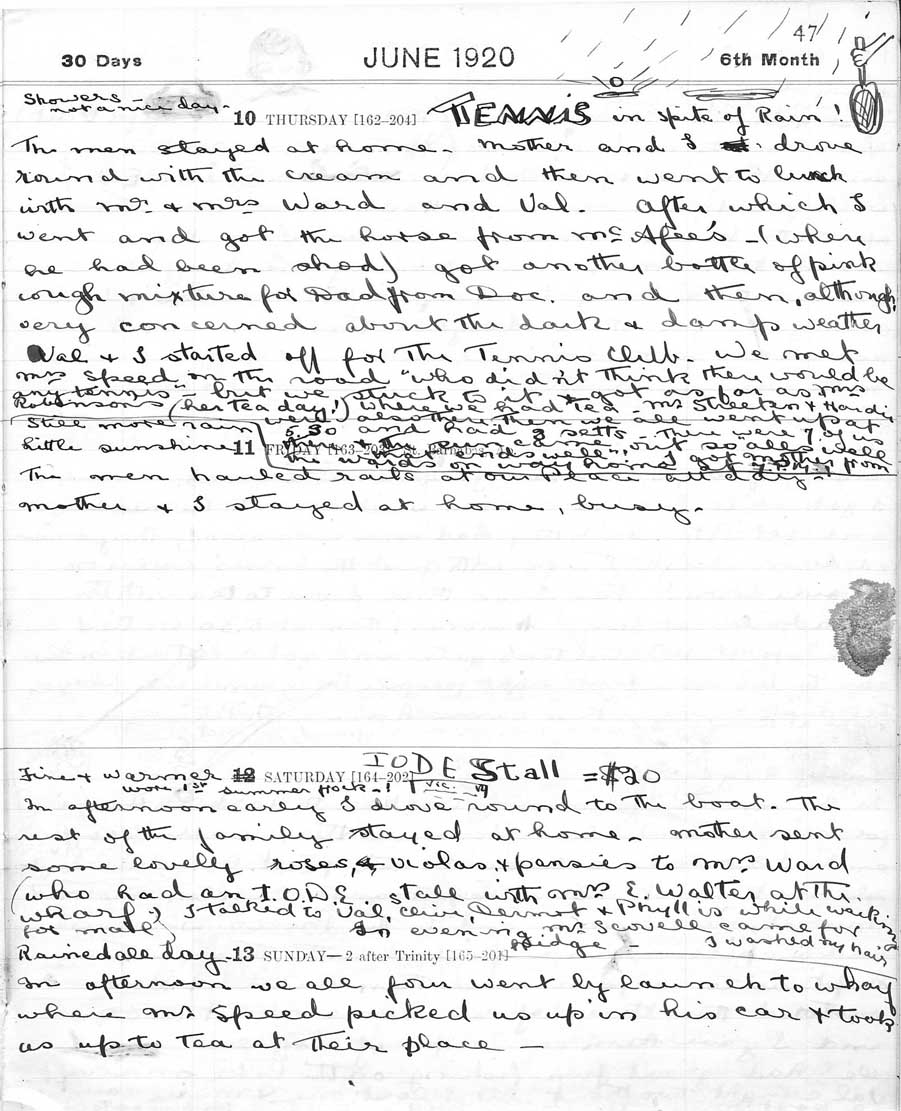 47
30 Days JUNE 1920 6th Month
Showers -
not a nice day -
10 THURSDAY [162–204] TENNIS in spite of Rain!
The men stayed at home - Mother and I drove
round with the cream and then went to lunch
with Mr. & Mrs Ward and Val. After which I
went and got the horse from Mc Afee's - (where
he had been shod) got another bottle of pink
cough mixture for Dad from Doc. and then, although
very concerned about the dark & damp weather
Val & I started off for The Tennis Club. We met
Mrs Speed on the road "who didn't think there would be
any tennis" - but we stuck to it & got as far as Mrs
Robinson's (her tea day!) where we had tea - Mrs Streeten & Hardie
were also there. Then we all went up at
5.30 and had 3 setts - There were 7 of us
there & the sun came out so all's well
the words on way home I got mother from
Still more rain
little sunshine 11 FRIDAY
The men hauled rails at our place all day -
Mother & I stayed at home, busy -
Fine & warmer 12 SATURDAY [164–202] IODE Stall = $20
wore 1st summer frock -!
In afternoon early I drove round to the boat. The
rest of the family stayed at home - Mother sent
some lovelly roses, violas & pansies to Mrs Ward
(who had an I.O.D.E. stall with Mrs E. Walter at the
wharf) I talked to Val, Clive, Dermot & Phyllis while waiting
for mail In evening Mr Scovell came for
Bridge - I washed my hair
Rained all day - 13 SUNDAY—2 after Trinity [165–201]
In afternoon we all four went by launch to wharf
where Mr Speed picked us up in his car & took
us up to Tea at Their place -